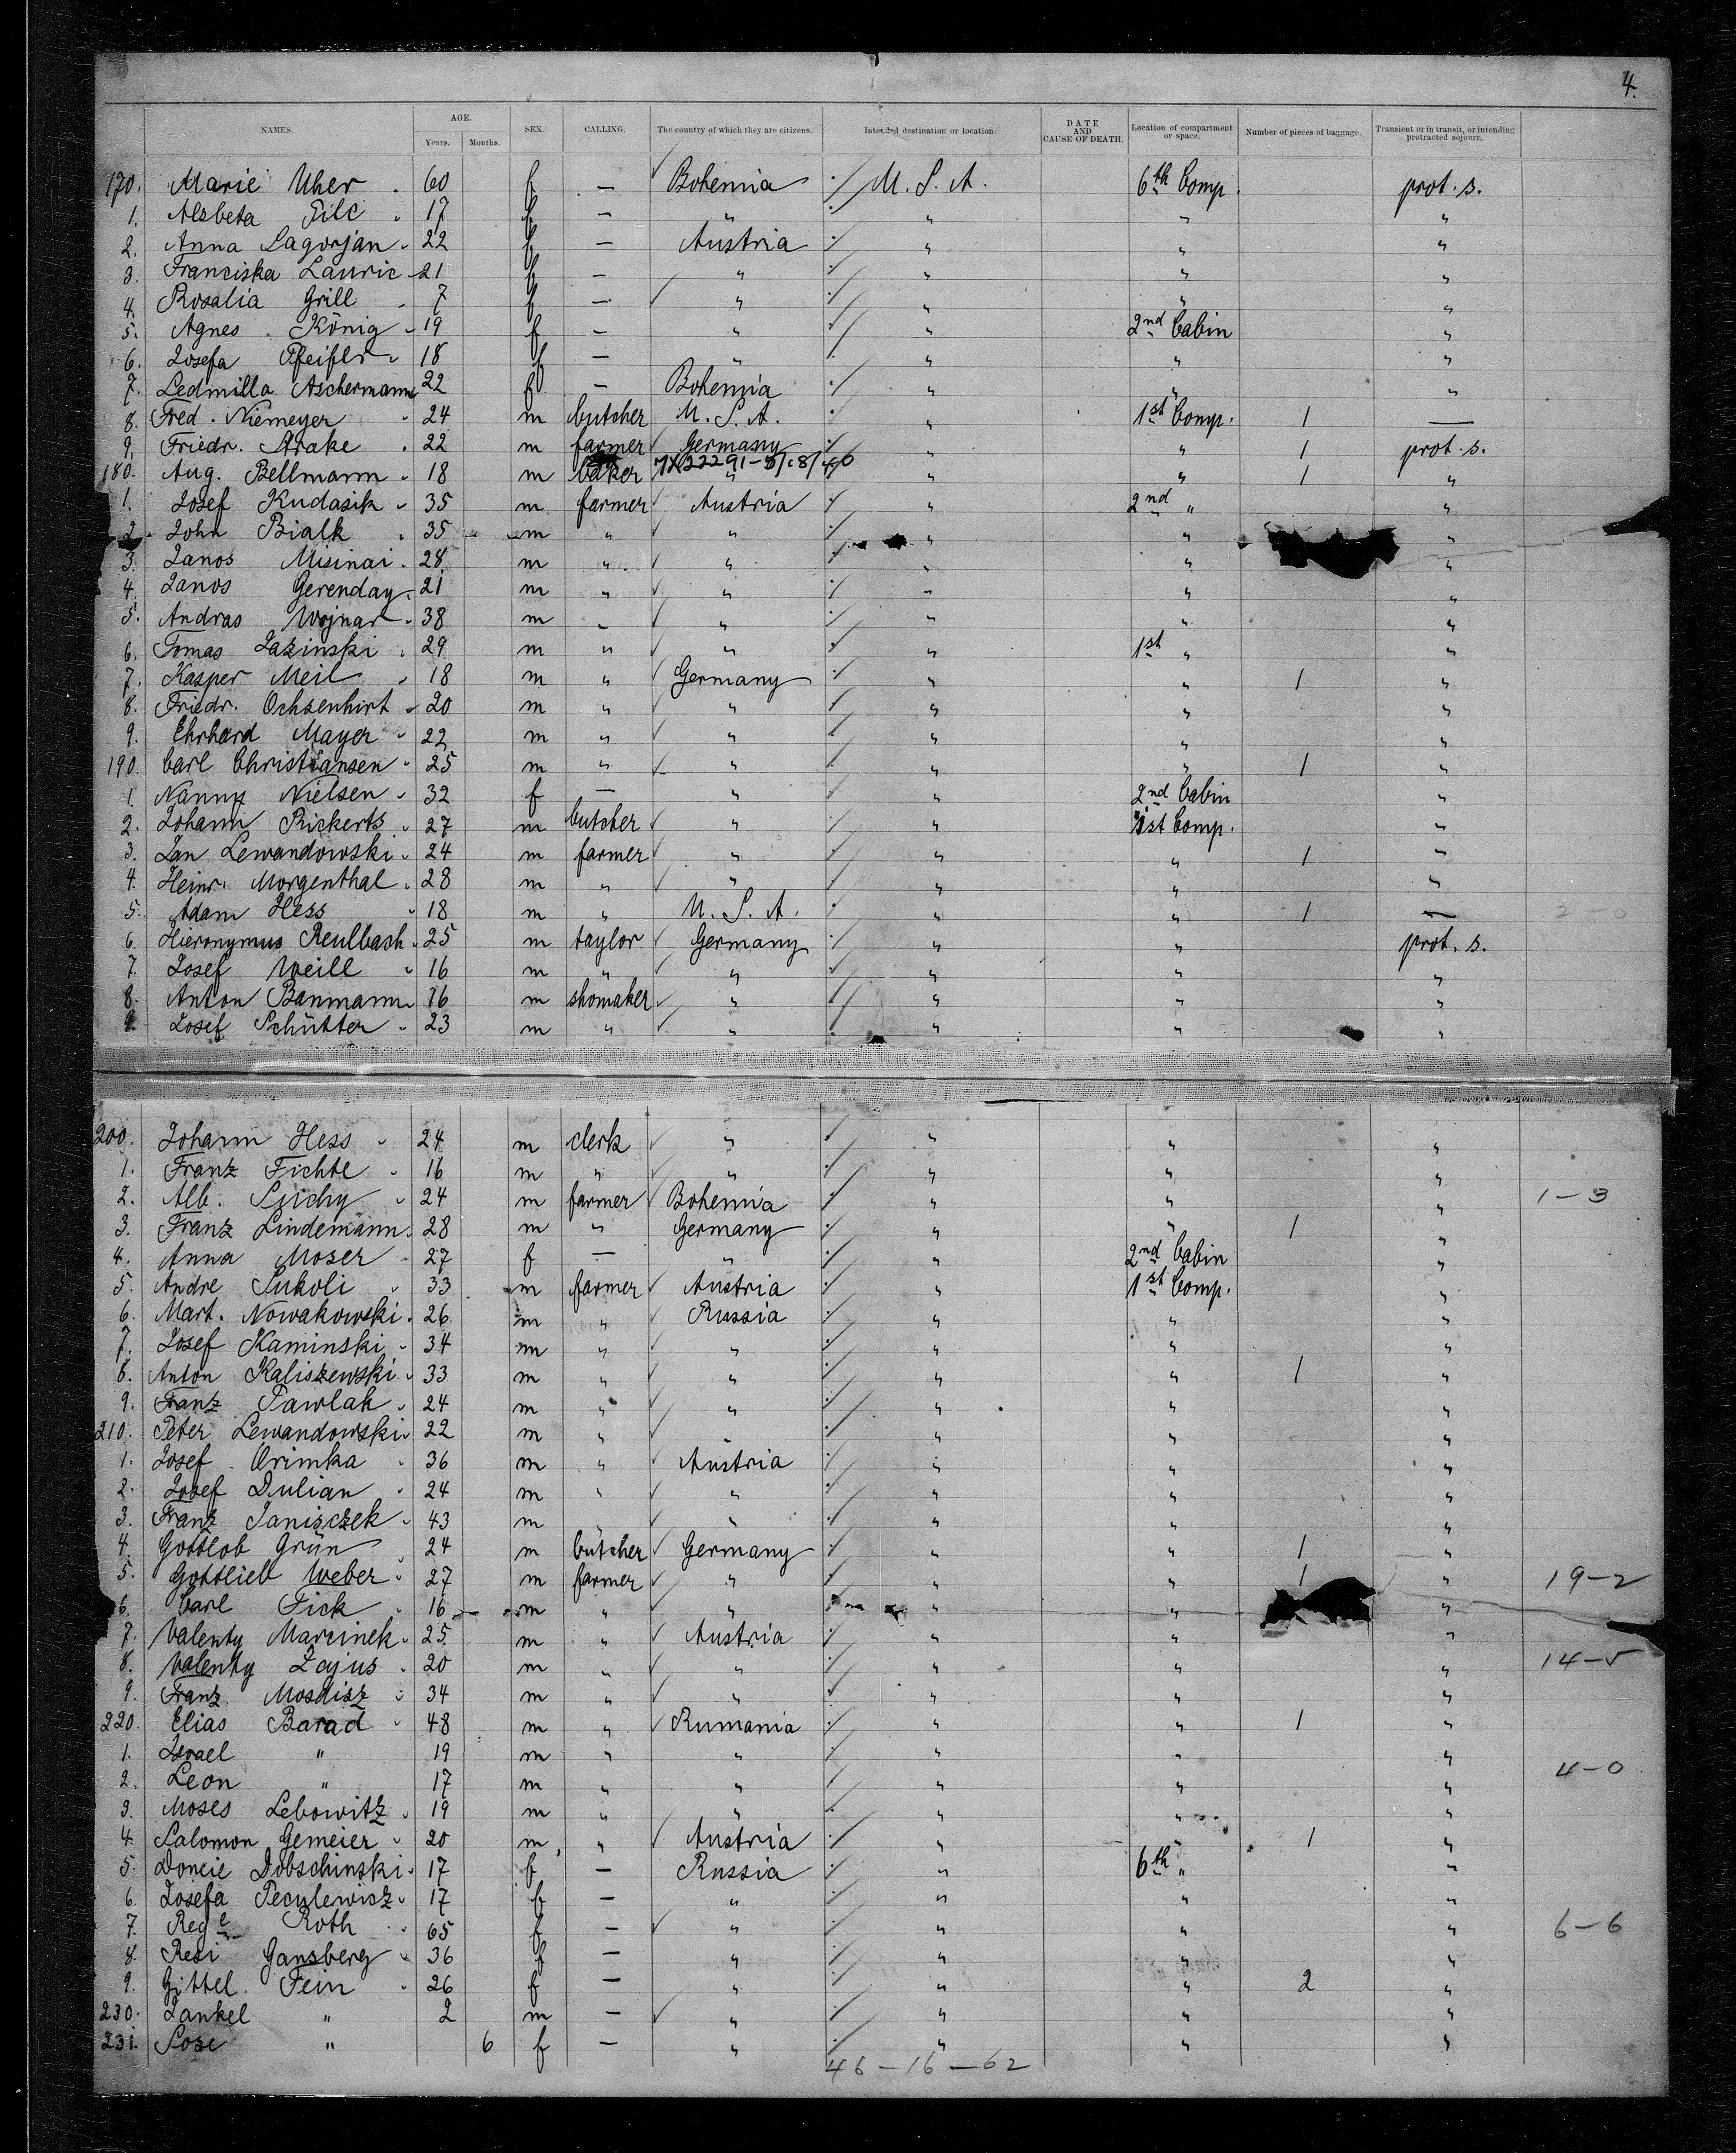 4.
NAMES. AGE. Years. Months. SEX. CALLING. The country of which they are citizens. Intended destination or location. DATE AND CAUSE OF DEATH. Location of compartment or space. Number of pieces of baggage. Transient or in transit, or intending protracted sojourn.
170. Marie Uher 60 f — Bohemia U. S. A. 6th Comp. prot. s.
1. Alzbeta Pilc 17 f — " " " "
2. Anna Lagorjan 22 f — Austria " " "
3. Franciska Lauric 21 f — " " " "
4. Rosalia Grill 7 f — " " " "
5. Agnes König 19 f — " " 2nd Cabin "
6. Josefa Pfeifler 18 f — " " " "
7. Ledmilla Aschermann 22 f — Bohemia " " "
8. Fred. Niemeyer 24 m butcher U. S. A. " 1st Comp. 1 —
9. Friedr. Strake 22 m farmer Germany " " 1 prot. s.
180. Aug. Bellmann 18 m baker " " " 1 "
1. Josef Kudasik 35 m farmer Austria " 2nd " "
2. John Bialk 35 m " " " " "
3. Janos Misinai 28 m " " " " "
4. Janos Gerenday 21 m " " " " "
5. Andras Wojnar 38 m " " " " "
6. Tomas Lazinski 29 m " " " 1st " "
7. Kasper Meil 18 m " Germany " " 1 "
8. Friedr. Ochsenhirt 20 m " " " " "
9. Ehrhard Mayer 22 m " " " " "
190. Carl Christiansen 25 m " " " " 1 "
1. Nanny Nielsen 32 f — " " 2nd Cabin "
2. Johann Rickerts 27 m butcher " " 1st Comp. "
3. Jan Lewandowski 24 m farmer " " " 1 "
4. Heinr. Morgenthal 28 m " " " " "
5. Adam Hess 18 m " U. S. A. " " 1 — 2-0
6. Hieronymus Reulbach 25 m taylor Germany " " prot. s.
7. Josef Weill 16 m " " " " "
8. Anton Banmann 16 m shomaker " " " "
9. Josef Schütter 23 m " " " " "
200. Johann Hess 24 m clerk " " " "
1. Franz Fichte 16 m " " " " "
2. Alb. Suchy 24 m farmer Bohemia " " " 1-3
3. Franz Lindemann 28 m " Germany " " 1 "
4. Anna Moser 27 f — " " 2nd Cabin "
5. Andre Sukoli 33 m farmer Austria " 1st Comp. "
6. Mart. Nowakowski 26 m " Russia " " "
7. Josef Kaminski 34 m " " " " "
8. Anton Kaliszewski 33 m " " " " 1 "
9. Franz Pawlak 24 m " " " " "
210. Peter Lewandowski 22 m " " " " "
1. Josef Orimka 36 m " Austria " " "
2. Josef Dulian 24 m " " " " "
3. Franz Janisczek 43 m " " " " "
4. Gottlob Grün 24 m butcher Germany " " 1 "
5. Gottlieb Weber 27 m farmer " " " 1 " 19-2
6. Carl Fick 16 m " " " " "
7. Valenty Marcinek 25 m " Austria " " "
8. Valenty Zajus 20 m " " " " " 14-5
9. Franz Mosdisz 34 m " " " " "
220. Elias Barad 48 m " Rumania " " 1 "
1. Israel " 19 m " " " " "
2. Leon " 17 m " " " " " 4-0
3. Moses Lebowitz 19 m " " " " "
4. Salomon Gemeier 20 m " Austria " " 1 "
5. Doncie Dobschinski 17 f — Russia " 6th " "
6. Josefa Peculewicz 17 f — " " " "
7. Rege Roth 65 f — " " " " 6-6
8. Resi Gansberg 36 f — " " " "
9. Gittel Fein 26 f — " " " 2 "
230. Jankel " 2 m — " " " "
231. Sose " 6 f — " " " "
46-16-62